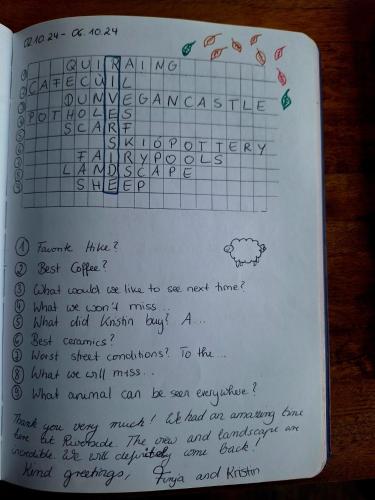 02.10.24 - 06.10.24
QUIRAING
CAFECUIL
DUNVEGANCASTLE
POTHOLES
SCARF
SKIÓPOTTERY
FAIRYPOOLS
LANDSCAPE
SHEEP
1 Favorite Hike?
2 Best Coffee?
3 What would we like to see next time?
4 What we won't miss...
5 What did Kristin buy? A...
6 Best ceramics?
7 Worst street conditions? To the...
8 What we will miss...
9 What animal can be seen everywhere?
Thank you very much! We had an amazing time
here at Riverside. The view and landscape are
incredible. We will definitely come back!
Kind greetings, Finja and Kristin